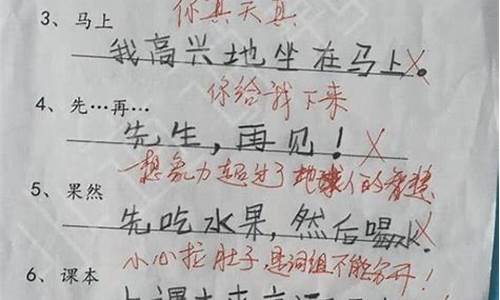 你真天真
3、马上
我高兴地坐在马上。
你给我下来
4、先…再…
先生，再见！
想象力超过了地球人的智慧
5、果然
先吃水果，然后喝水.
小心拉肚子,是词组不能分开！
6、课本
上课本来应